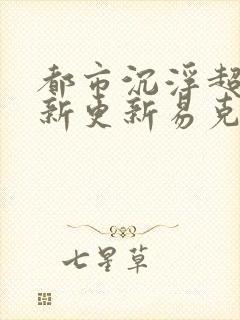 都市沉浮超
新更新易克
七星草